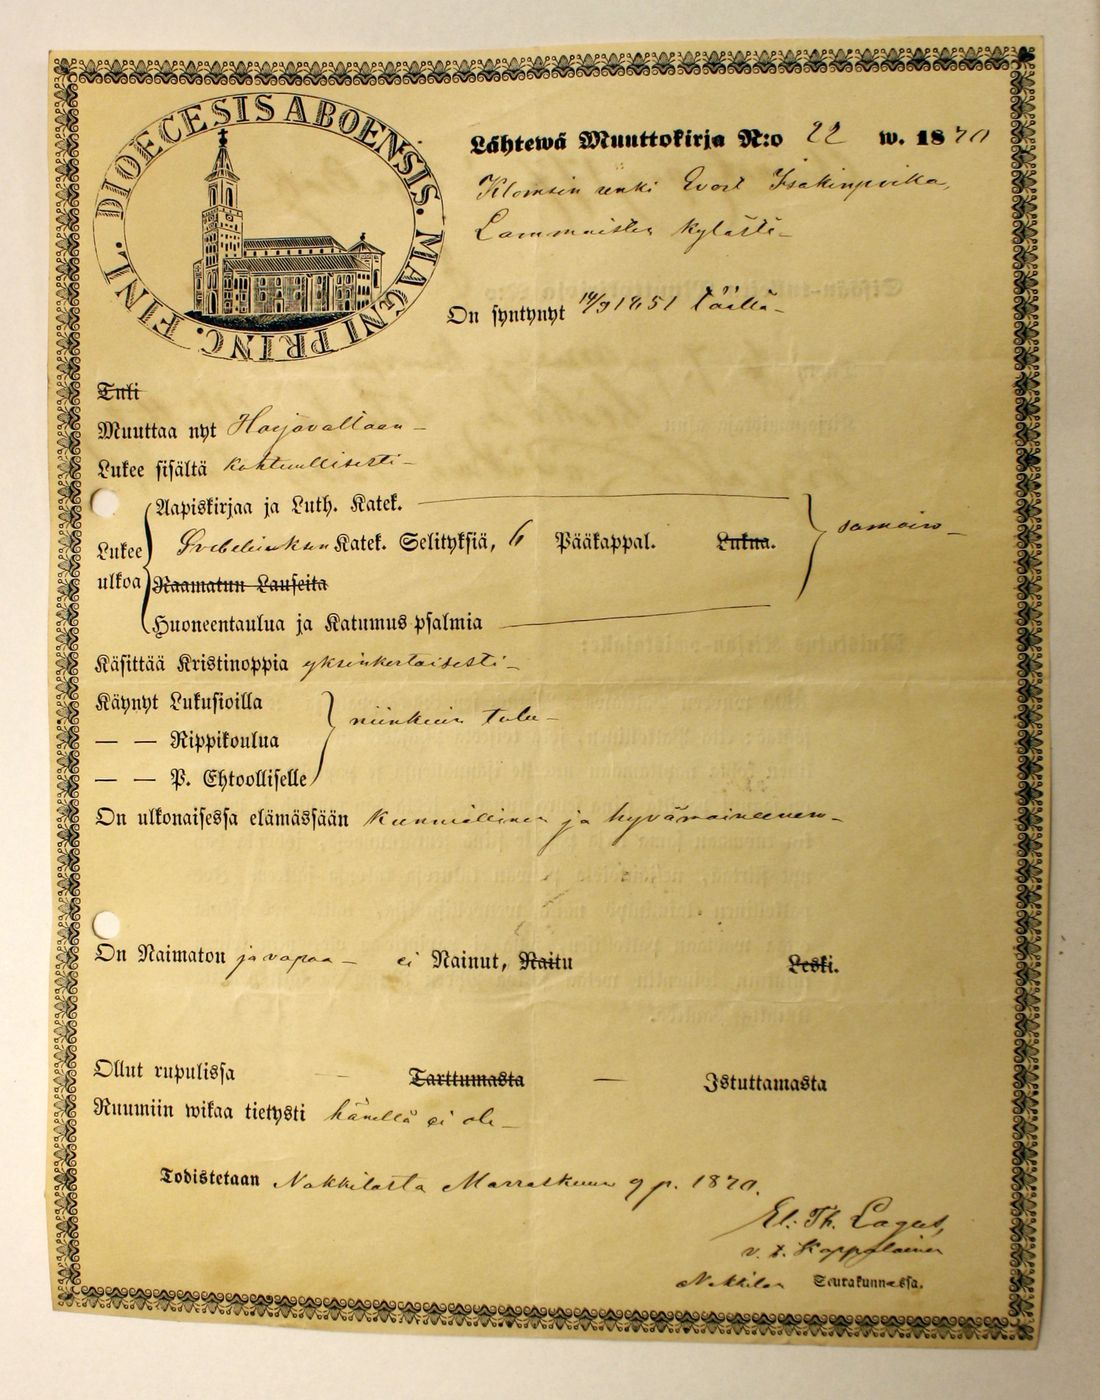 DIOECESIS ABOENSIS. MAGNI PRINC. FINL.
Lähtewä Muuttokirja N:o 22 w. 1870
renki Isakinpoika,
Lammaisten kylästä
On syntynyt 14/9 1851 täällä
Tuli
Muuttaa nyt Harjavaltaan
Lukee sisältä kohtuullisesti
Aapiskirjaa ja Luth. Katek.
Lukee Svebeliuksen Katek. Selityksiä, 6 Pääkappal. Lukua. samoin
ulkoa Raamatun Lauseita
Huoneentaulua ja Katumus psalmia
Käsittää Kristinoppia yksinkertaisesti
Käynyt Lukusioilla
— — Rippikoulua niinkuin tulee
— — P. Ehtoolliselle
On ulkonaisessa elämässään kunniallinen ja hyvämaineinen
On Naimaton ja vapaa – ei Nainut, Naitu Leski.
Ollut rupulissa — Tarttumasta — Istuttamasta
Ruumiin wikaa tietysti hänellä ei ole
Todistetaan Nakkilasta Marraskuun 9 p. 1870.
El. Th. Lagus,
v. t. Kappalainen
Nakkilan Seurakunnassa.